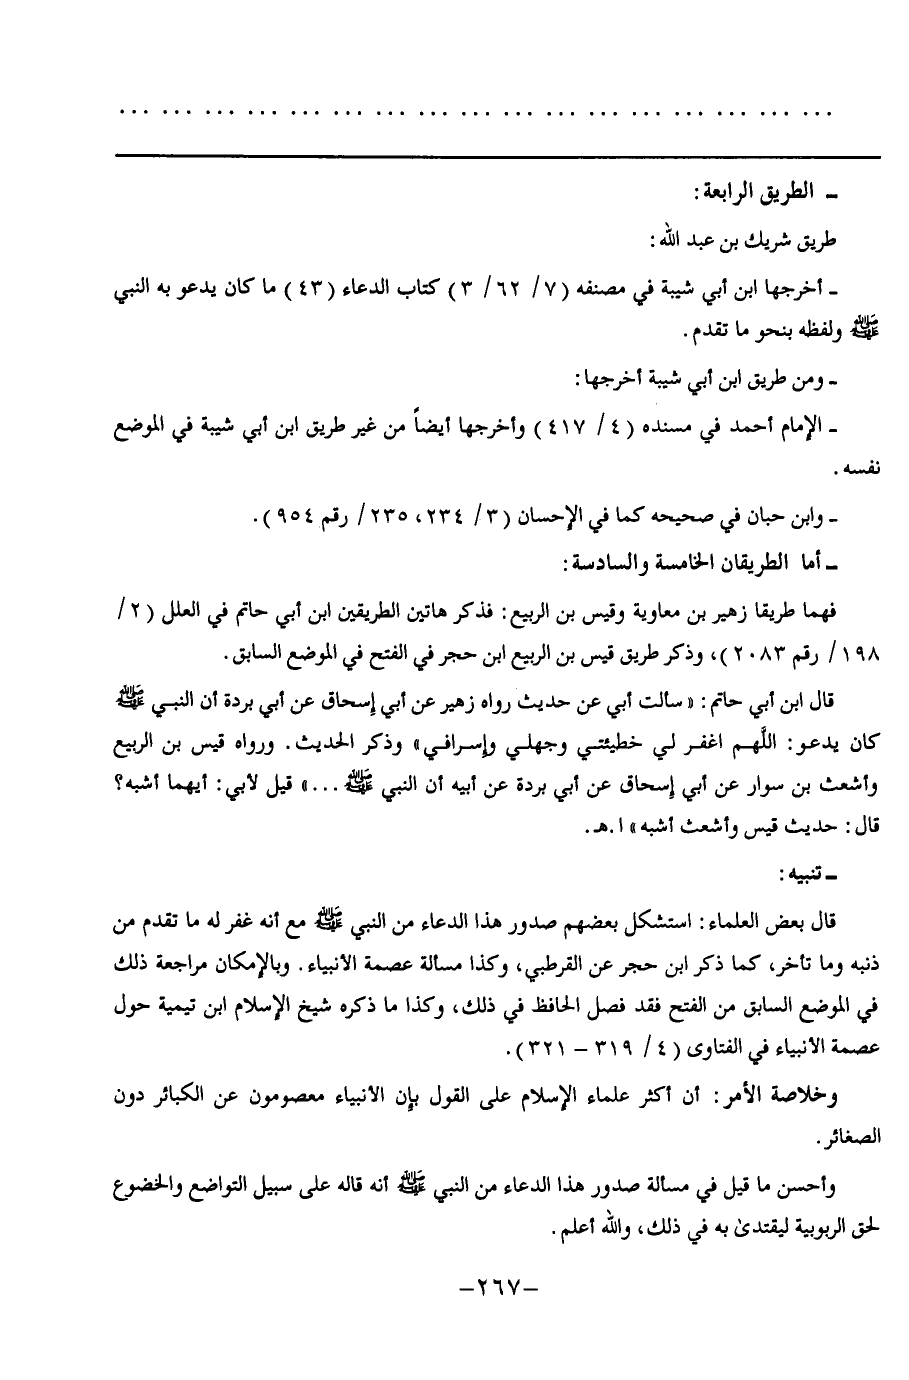 ... ... ... ... ... ... ... ... ... ... ... ... ... ... ... ... ...
ـ الطريق الرابعة:
طريق شريك بن عبد الله:
ـ أخرجها ابن أبي شيبة في مصنفه (٧/ ٦٢/ ٣) كتاب الدعاء (٤٣) ما كان يدعو به النبي
ﷺ ولفظه بنحو ما تقدم.
ـ ومن طريق ابن أبي شيبة أخرجها:
ـ الإمام أحمد في مسنده (٤/ ٤١٧) وأخرجها أيضاً من غير طريق ابن أبي شيبة في الموضع
نفسه.
ـ وابن حبان في صحيحه كما في الإحسان (٣/ ٢٣٤، ٢٣٥/ رقم ٩٥٤).
ـ أما الطريقان الخامسة والسادسة:
فهما طريقا زهير بن معاوية وقيس بن الربيع: فذكر هاتين الطريقين ابن أبي حاتم في العلل (٢/
١٩٨/ رقم ٢٠٨٣)، وذكر طريق قيس بن الربيع ابن حجر في الفتح في الموضع السابق.
قال ابن أبي حاتم: «سألت أبي عن حديث رواه زهير عن أبي إسحاق عن أبي بردة أن النبي ﷺ
كان يدعو: اللَّهم اغفر لي خطيئتي وجهلي وإسرافي» وذكر الحديث. ورواه قيس بن الربيع
وأشعث بن سوار عن أبي إسحاق عن أبي بردة عن أبيه أن النبي ﷺ...» قيل لأبي: أيهما أشبه؟
قال: حديث قيس وأشعث أشبه» ا.هـ.
ـ تنبيه:
قال بعض العلماء: استشكل بعضهم صدور هذا الدعاء من النبي ﷺ مع أنه غفر له ما تقدم من
ذنبه وما تأخر، كما ذكر ابن حجر عن القرطبي، وكذا مسألة عصمة الأنبياء. وبالإمكان مراجعة ذلك
في الموضع السابق من الفتح فقد فصل الحافظ في ذلك، وكذا ما ذكره شيخ الإسلام ابن تيمية حول
عصمة الأنبياء في الفتاوى (٤/ ٣١٩ – ٣٢١).
وخلاصة الأمر: أن أكثر علماء الإسلام على القول بإن الأنبياء معصومون عن الكبائر دون
الصغائر.
وأحسن ما قيل في مسألة صدور هذا الدعاء من النبي ﷺ أنه قاله على سبيل التواضع والخضوع
لحق الربوبية ليقتدىٰ به في ذلك، والله أعلم.
–٢٦٧–